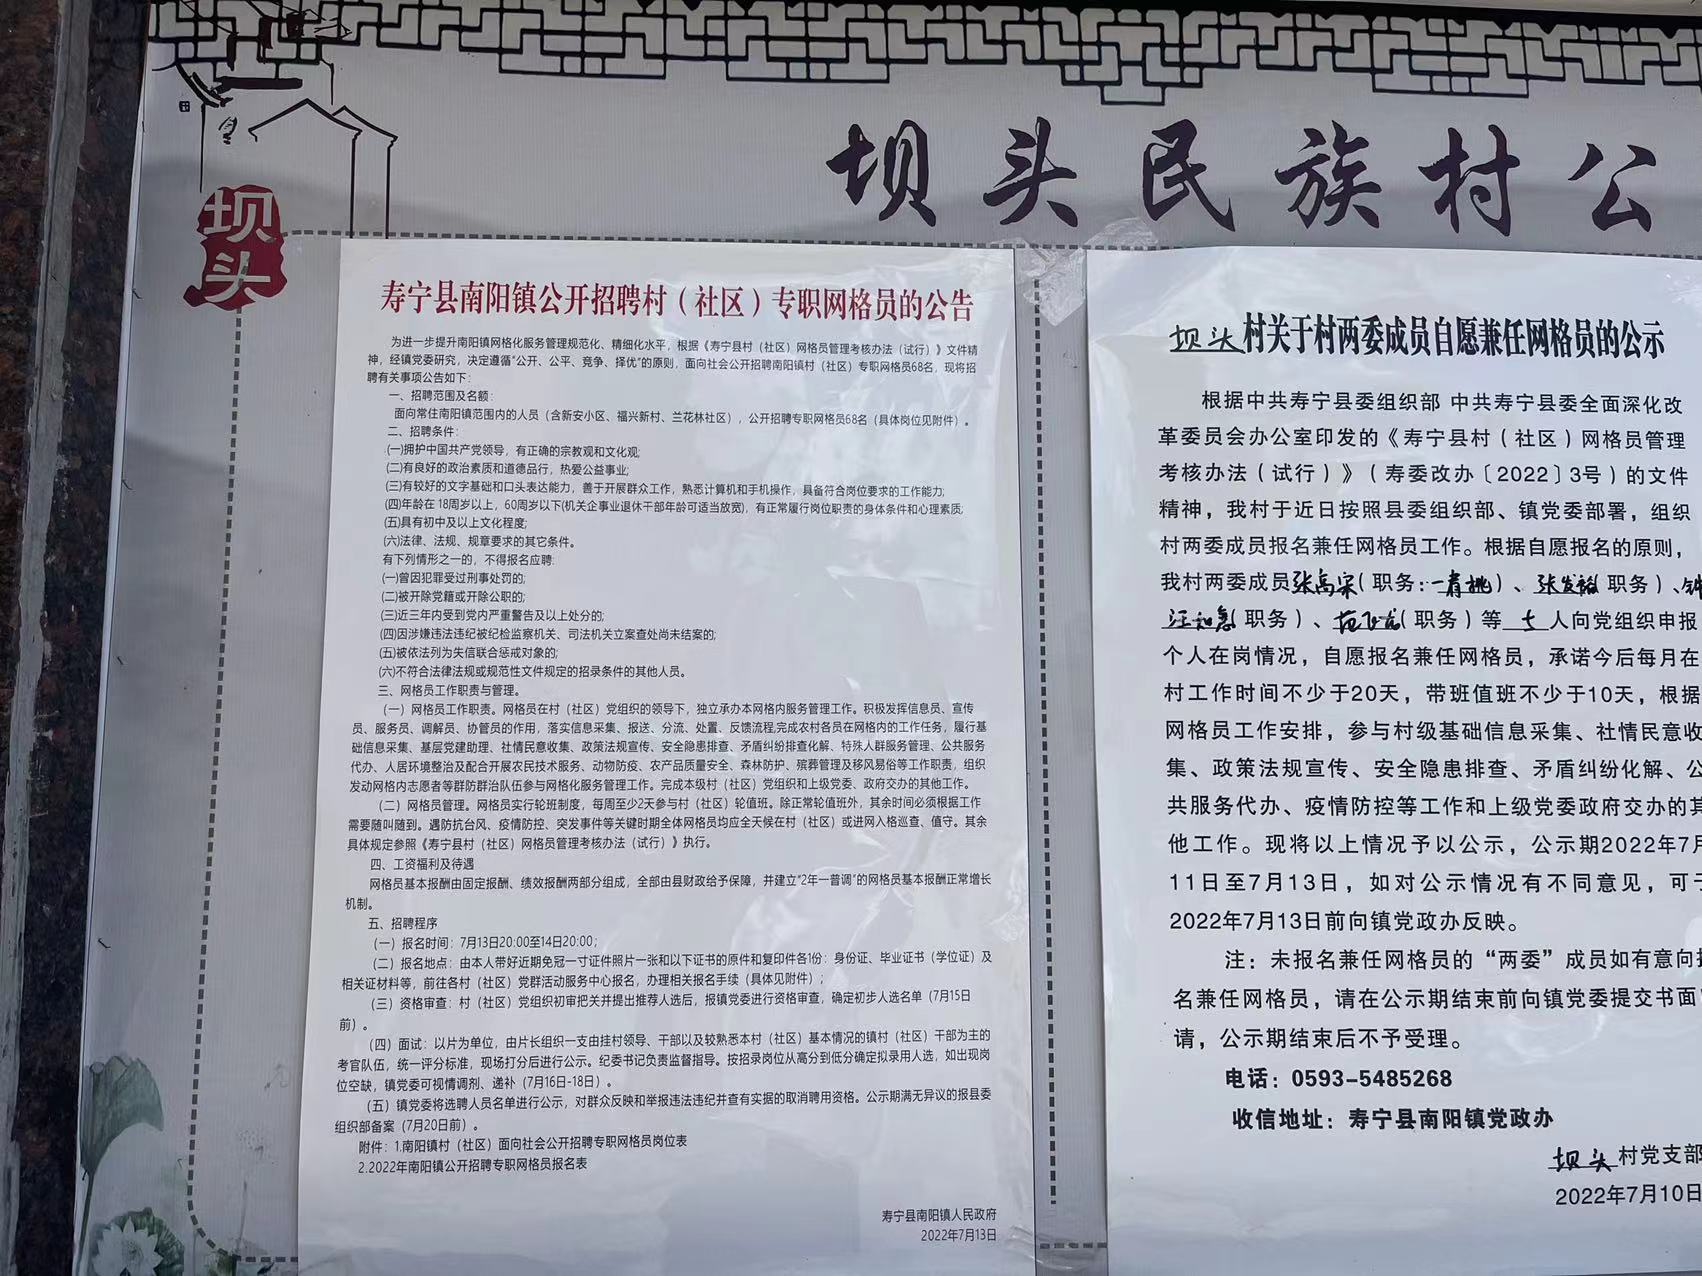 坝头民族村公
坝
头
寿宁县南阳镇公开招聘村（社区）专职网格员的公告
为进一步提升南阳镇网格化服务管理规范化、精细化水平，根据《寿宁县村（社区）网格员管理考核办法（试行）》文件精
神，经镇党委研究，决定遵循“公开、公平、竞争、择优”的原则，面向社会公开招聘南阳镇村（社区）专职网格员68名，现将招
聘有关事项公告如下：
一、招聘范围及名额：
面向常住南阳镇范围内的人员（含新安小区、福兴新村、兰花林社区），公开招聘专职网格员68名（具体岗位见附件）。
二、招聘条件：
(一)拥护中国共产党领导，有正确的宗教观和文化观;
(二)有良好的政治素质和道德品行，热爱公益事业;
(三)有较好的文字基础和口头表达能力，善于开展群众工作，熟悉计算机和手机操作，具备符合岗位要求的工作能力;
(四)年龄在18周岁以上，60周岁以下(机关企事业退休干部年龄可适当放宽)，有正常履行岗位职责的身体条件和心理素质;
(五)具有初中及以上文化程度;
(六)法律、法规、规章要求的其它条件。
有下列情形之一的，不得报名应聘:
(一)曾因犯罪受过刑事处罚的;
(二)被开除党籍或开除公职的;
(三)近三年内受到党内严重警告及以上处分的;
(四)因涉嫌违法违纪被纪检监察机关、司法机关立案查处尚未结案的;
(五)被依法列为失信联合惩戒对象的;
(六)不符合法律法规或规范性文件规定的招录条件的其他人员。
三、网格员工作职责与管理。
（一）网格员工作职责。网格员在村（社区）党组织的领导下，独立承办本网格内服务管理工作。积极发挥信息员、宣传
员、服务员、调解员、协管员的作用，落实信息采集、报送、分流、处置、反馈流程,完成农村各员在网格内的工作任务，履行基
础信息采集、基层党建助理、社情民意收集、政策法规宣传、安全隐患排查、矛盾纠纷排查化解、特殊人群服务管理、公共服务
代办、人居环境整治及配合开展农民技术服务、动物防疫、农产品质量安全、森林防护、殡葬管理及移风易俗等工作职责，组织
发动网格内志愿者等群防群治队伍参与网格化服务管理工作。完成本级村（社区）党组织和上级党委、政府交办的其他工作。
（二）网格员管理。网格员实行轮班制度，每周至少2天参与村（社区）轮值班。除正常轮值班外，其余时间必须根据工作
需要随叫随到。遇防抗台风、疫情防控、突发事件等关键时期全体网格员均应全天候在村（社区）或进网入格巡查、值守。其余
具体规定参照《寿宁县村（社区）网格员管理考核办法（试行）》执行。
四、工资福利及待遇
网格员基本报酬由固定报酬、绩效报酬两部分组成，全部由县财政给予保障，并建立“2年一普调”的网格员基本报酬正常增长
机制。
五、招聘程序
（一）报名时间：7月13日20:00至14日20:00；
（二）报名地点：由本人带好近期免冠一寸证件照片一张和以下证书的原件和复印件各1份：身份证、毕业证书（学位证）及
相关证材料等，前往各村（社区）党群活动服务中心报名，办理相关报名手续（具体见附件）；
（三）资格审查：村（社区）党组织初审把关并提出推荐人选后，报镇党委进行资格审查，确定初步人选名单（7月15日
前）。
（四）面试：以片为单位，由片长组织一支由挂村领导、干部以及较熟悉本村（社区）基本情况的镇村（社区）干部为主的
考官队伍，统一评分标准，现场打分后进行公示。纪委书记负责监督指导。按招录岗位从高分到低分确定拟录用人选，如出现岗
位空缺，镇党委可视情调剂、递补（7月16日-18日）。
（五）镇党委将选聘人员名单进行公示，对群众反映和举报违法违纪并查有实据的取消聘用资格。公示期满无异议的报县委
组织部备案（7月20日前）。
附件：1.南阳镇村（社区）面向社会公开招聘专职网格员岗位表
2.2022年南阳镇公开招聘专职网格员报名表
寿宁县南阳镇人民政府
2022年7月13日
坝头村关于村两委成员自愿兼任网格员的公示
根据中共寿宁县委组织部 中共寿宁县委全面深化改
革委员会办公室印发的《寿宁县村（社区）网格员管理
考核办法（试行）》（寿委改办〔2022〕3号）的文件
精神，我村于近日按照县委组织部、镇党委部署，组织
村两委成员报名兼任网格员工作。根据自愿报名的原则，
我村两委成员张高宋（职务:一肩挑）、张发裕（职务）、钟
（职务）、范飞龙（职务）等七人向党组织申报
个人在岗情况，自愿报名兼任网格员，承诺今后每月在
村工作时间不少于20天，带班值班不少于10天，根据
网格员工作安排，参与村级基础信息采集、社情民意收
集、政策法规宣传、安全隐患排查、矛盾纠纷化解、公
共服务代办、疫情防控等工作和上级党委政府交办的其
他工作。现将以上情况予以公示，公示期2022年7月
11日至7月13日，如对公示情况有不同意见，可于
2022年7月13日前向镇党政办反映。
注：未报名兼任网格员的“两委”成员如有意向报
名兼任网格员，请在公示期结束前向镇党委提交书面
请，公示期结束后不予受理。
电话：0593-5485268
收信地址：寿宁县南阳镇党政办
坝头村党支部
2022年7月10日